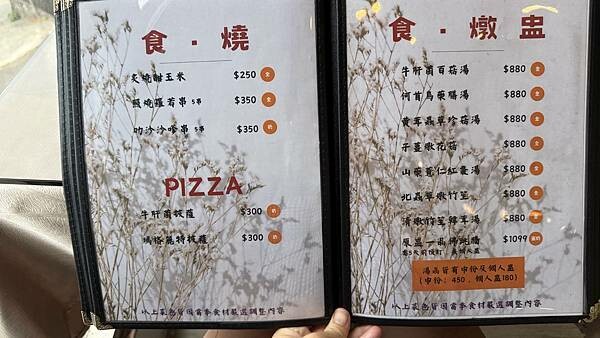 食．燒
炙燒甜玉米 $250 全
醬燒蘿蔔串 5串 $350 全
叻沙沙嗲串 5串 $350 奶
PIZZA
牛肝菌披薩 $300 奶
瑪格麗特披薩 $300 奶
以上菜色皆因當季食材嚴選調整內容
食．燉盅
牛肝菌百菇湯 $880 全
何首烏藥膳湯 $880 全
黃耳蟲草珍菇湯 $880 全
子薑燉花菇 $880 全
山藥薏仁紅棗湯 $880 全
北蟲草燉竹笙 $880 全
清燉竹笙 $880 全
鳳盅一品佛跳牆 $1099
需5天前預訂
湯品皆有中份及個人盅
(中份：450，個人盅180)
以上菜色皆因當季食材嚴選調整內容